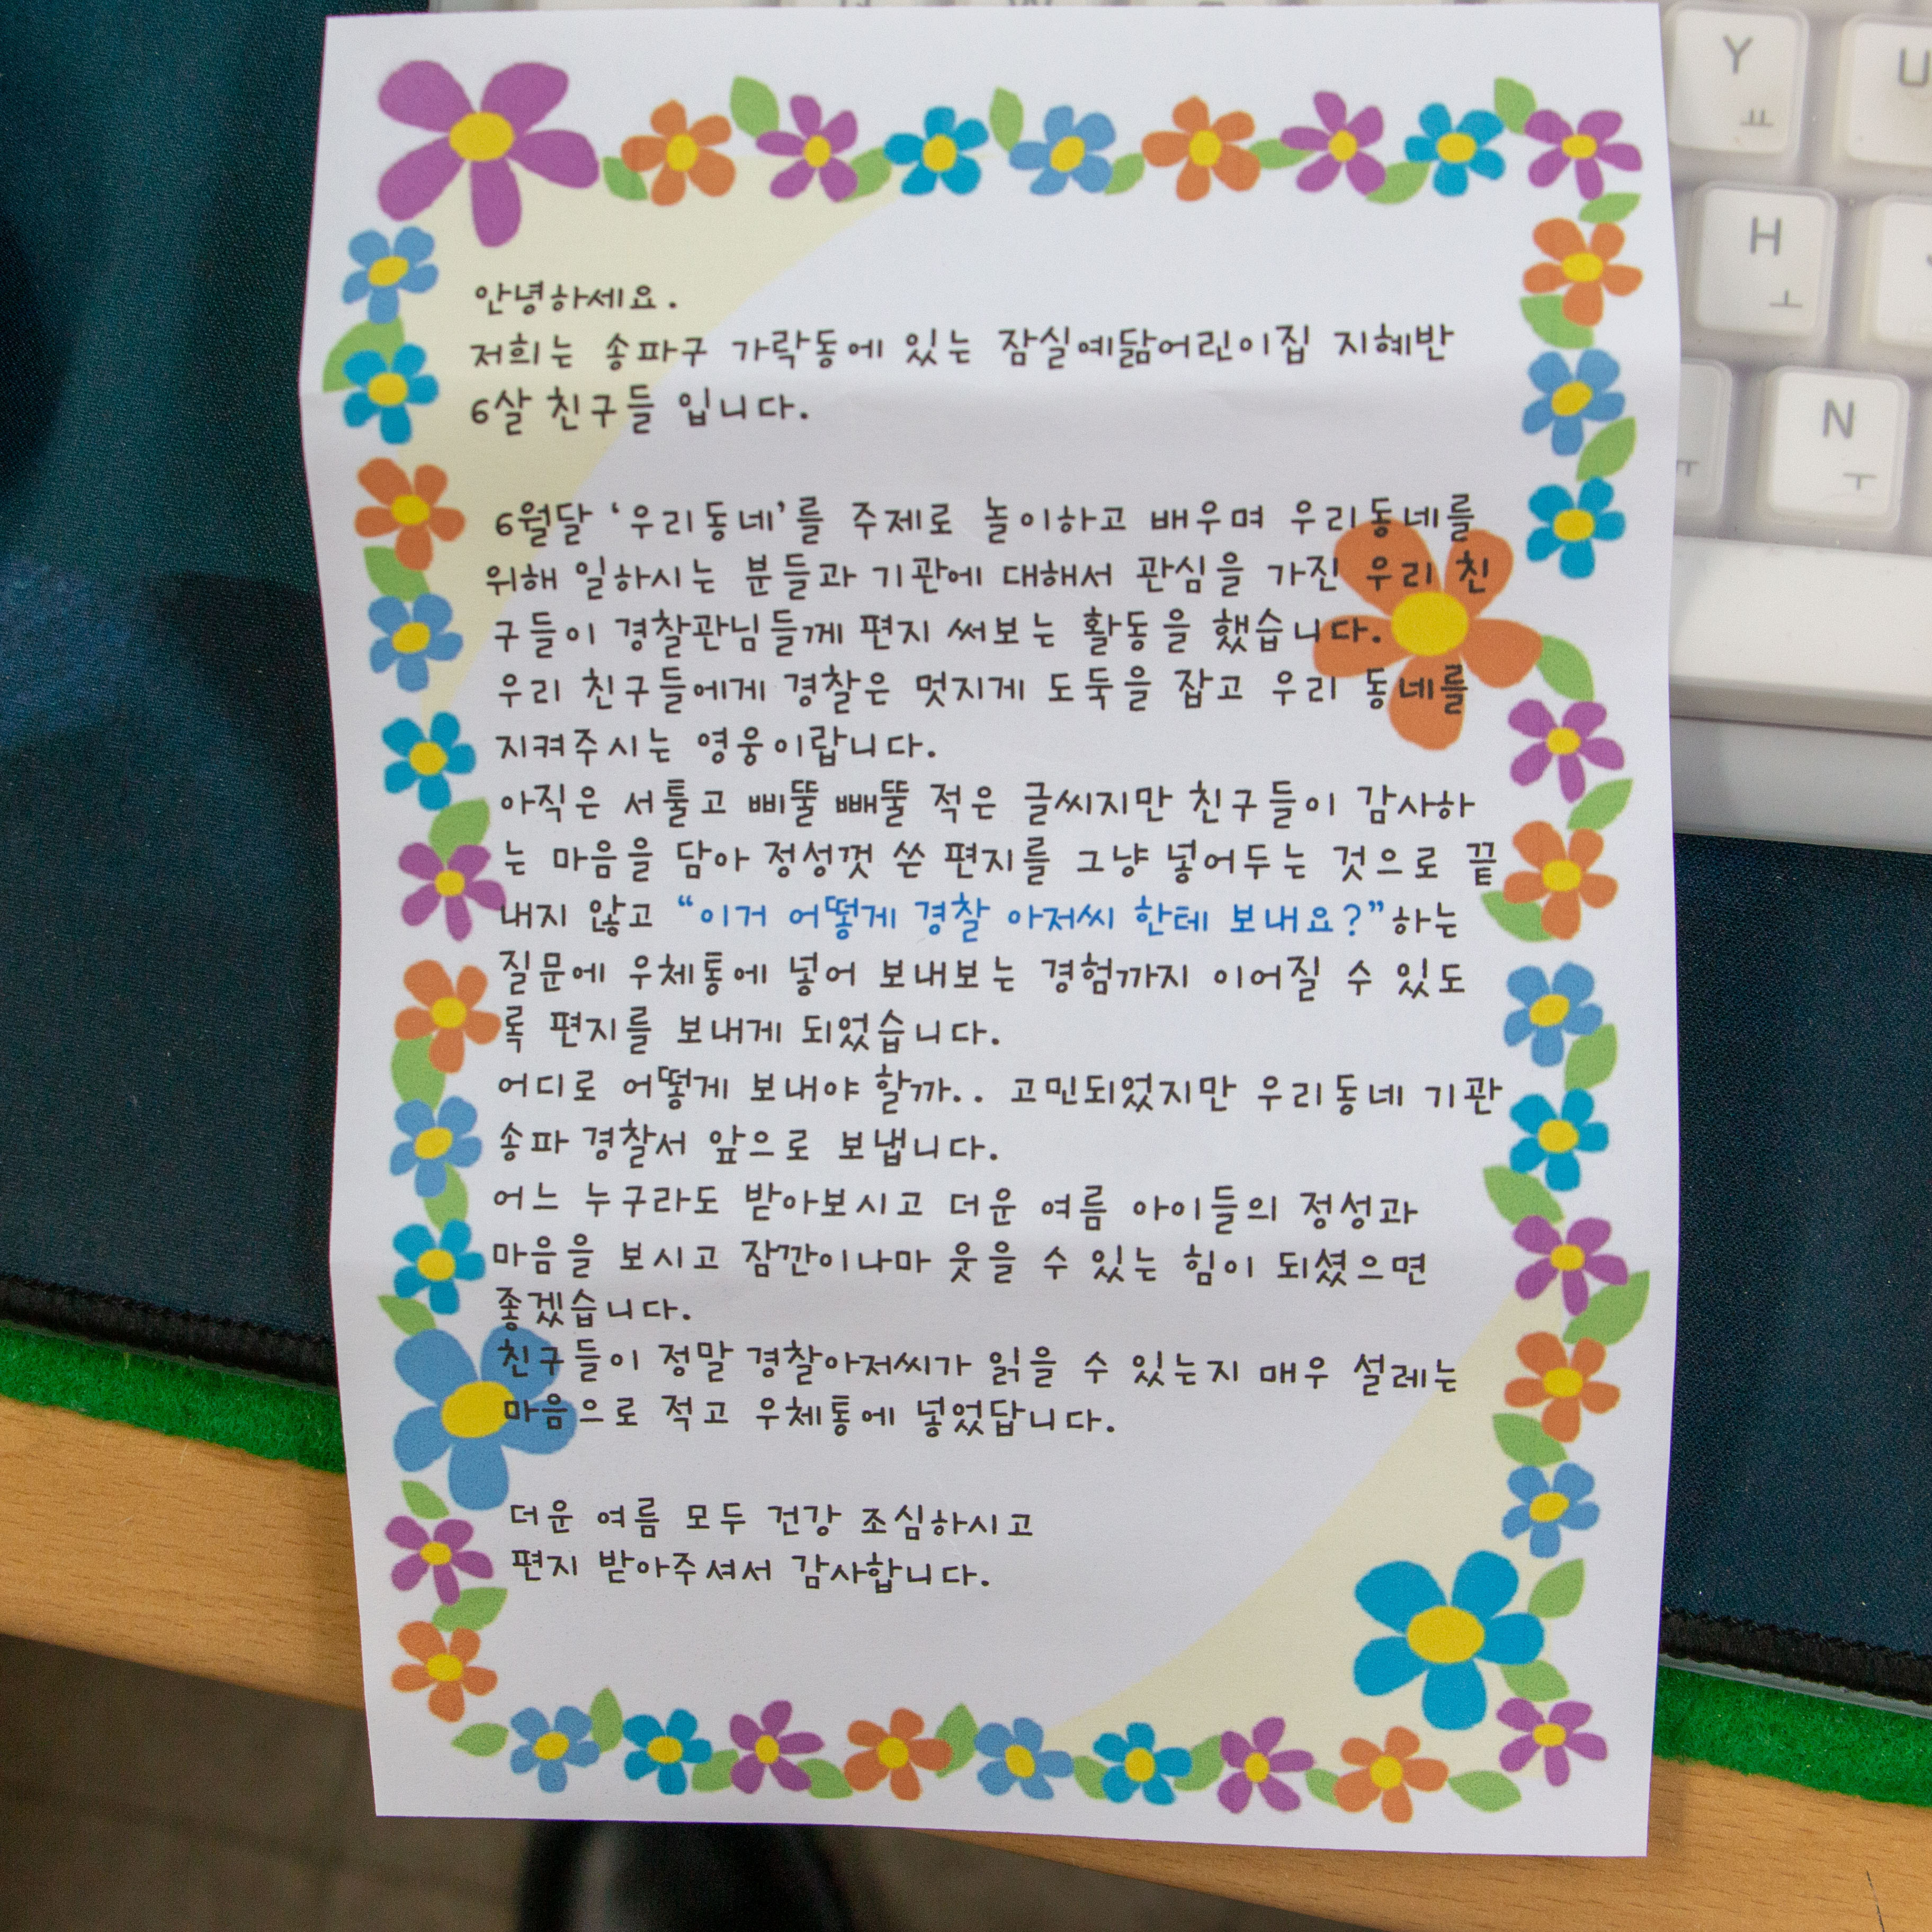 안녕하세요.
저희는 송파구 가락동에 있는 잠실예닮어린이집 지혜반
6살 친구들 입니다.
6월달 ‘우리동네’를 주제로 놀이하고 배우며 우리동네를
위해 일하시는 분들과 기관에 대해서 관심을 가진 우리 친
구들이 경찰관님들께 편지 써보는 활동을 했습니다.
우리 친구들에게 경찰은 멋지게 도둑을 잡고 우리 동네를
지켜주시는 영웅이랍니다.
아직은 서툴고 삐뚤 빼뚤 적은 글씨지만 친구들이 감사하
는 마음을 담아 정성껏 쓴 편지를 그냥 넣어두는 것으로 끝
내지 않고 “이거 어떻게 경찰 아저씨 한테 보내요?”하는
질문에 우체통에 넣어 보내보는 경험까지 이어질 수 있도
록 편지를 보내게 되었습니다.
어디로 어떻게 보내야 할까.. 고민되었지만 우리동네 기관
송파 경찰서 앞으로 보냅니다.
어느 누구라도 받아보시고 더운 여름 아이들의 정성과
마음을 보시고 잠깐이나마 웃을 수 있는 힘이 되셨으면
좋겠습니다.
친구들이 정말 경찰아저씨가 읽을 수 있는지 매우 설레는
마음으로 적고 우체통에 넣었답니다.
더운 여름 모두 건강 조심하시고
편지 받아주셔서 감사합니다.
Y ㅛ
U
H ㅗ
N ㅜ